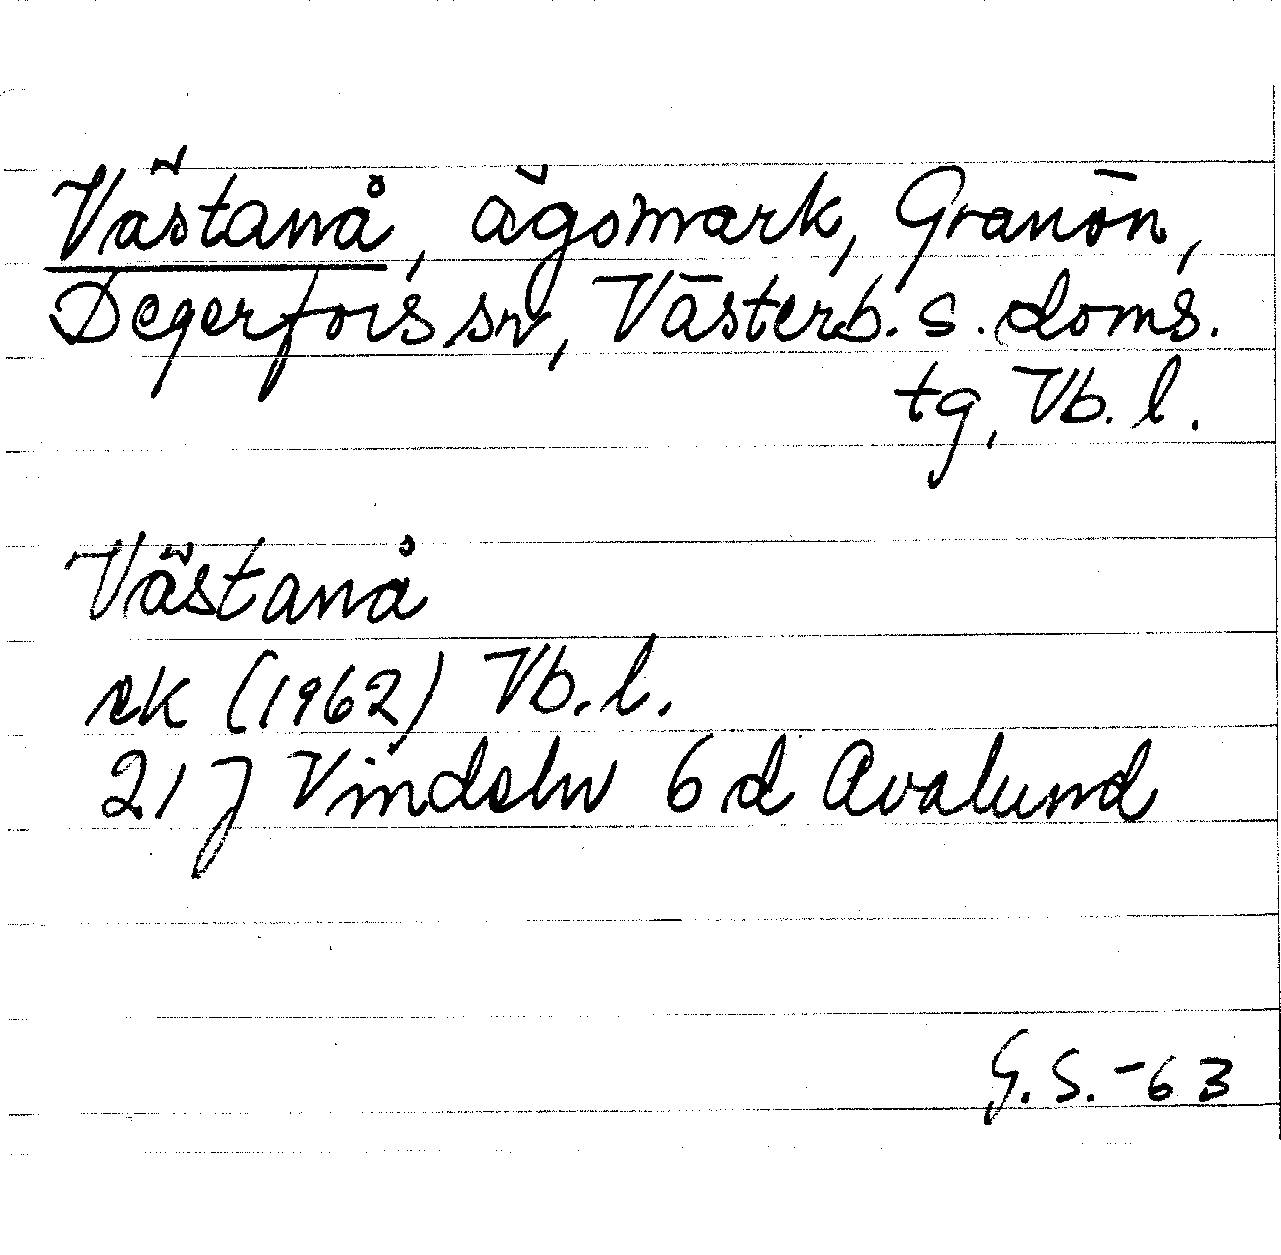 Västanå, ägomark, Granön,
Degerfors sn, Västerb. s. doms.
tg, Vb. l.
Västanå
ek (1962) Vb. l.
21 J Vindeln 6 d Avalund
G. S. -63